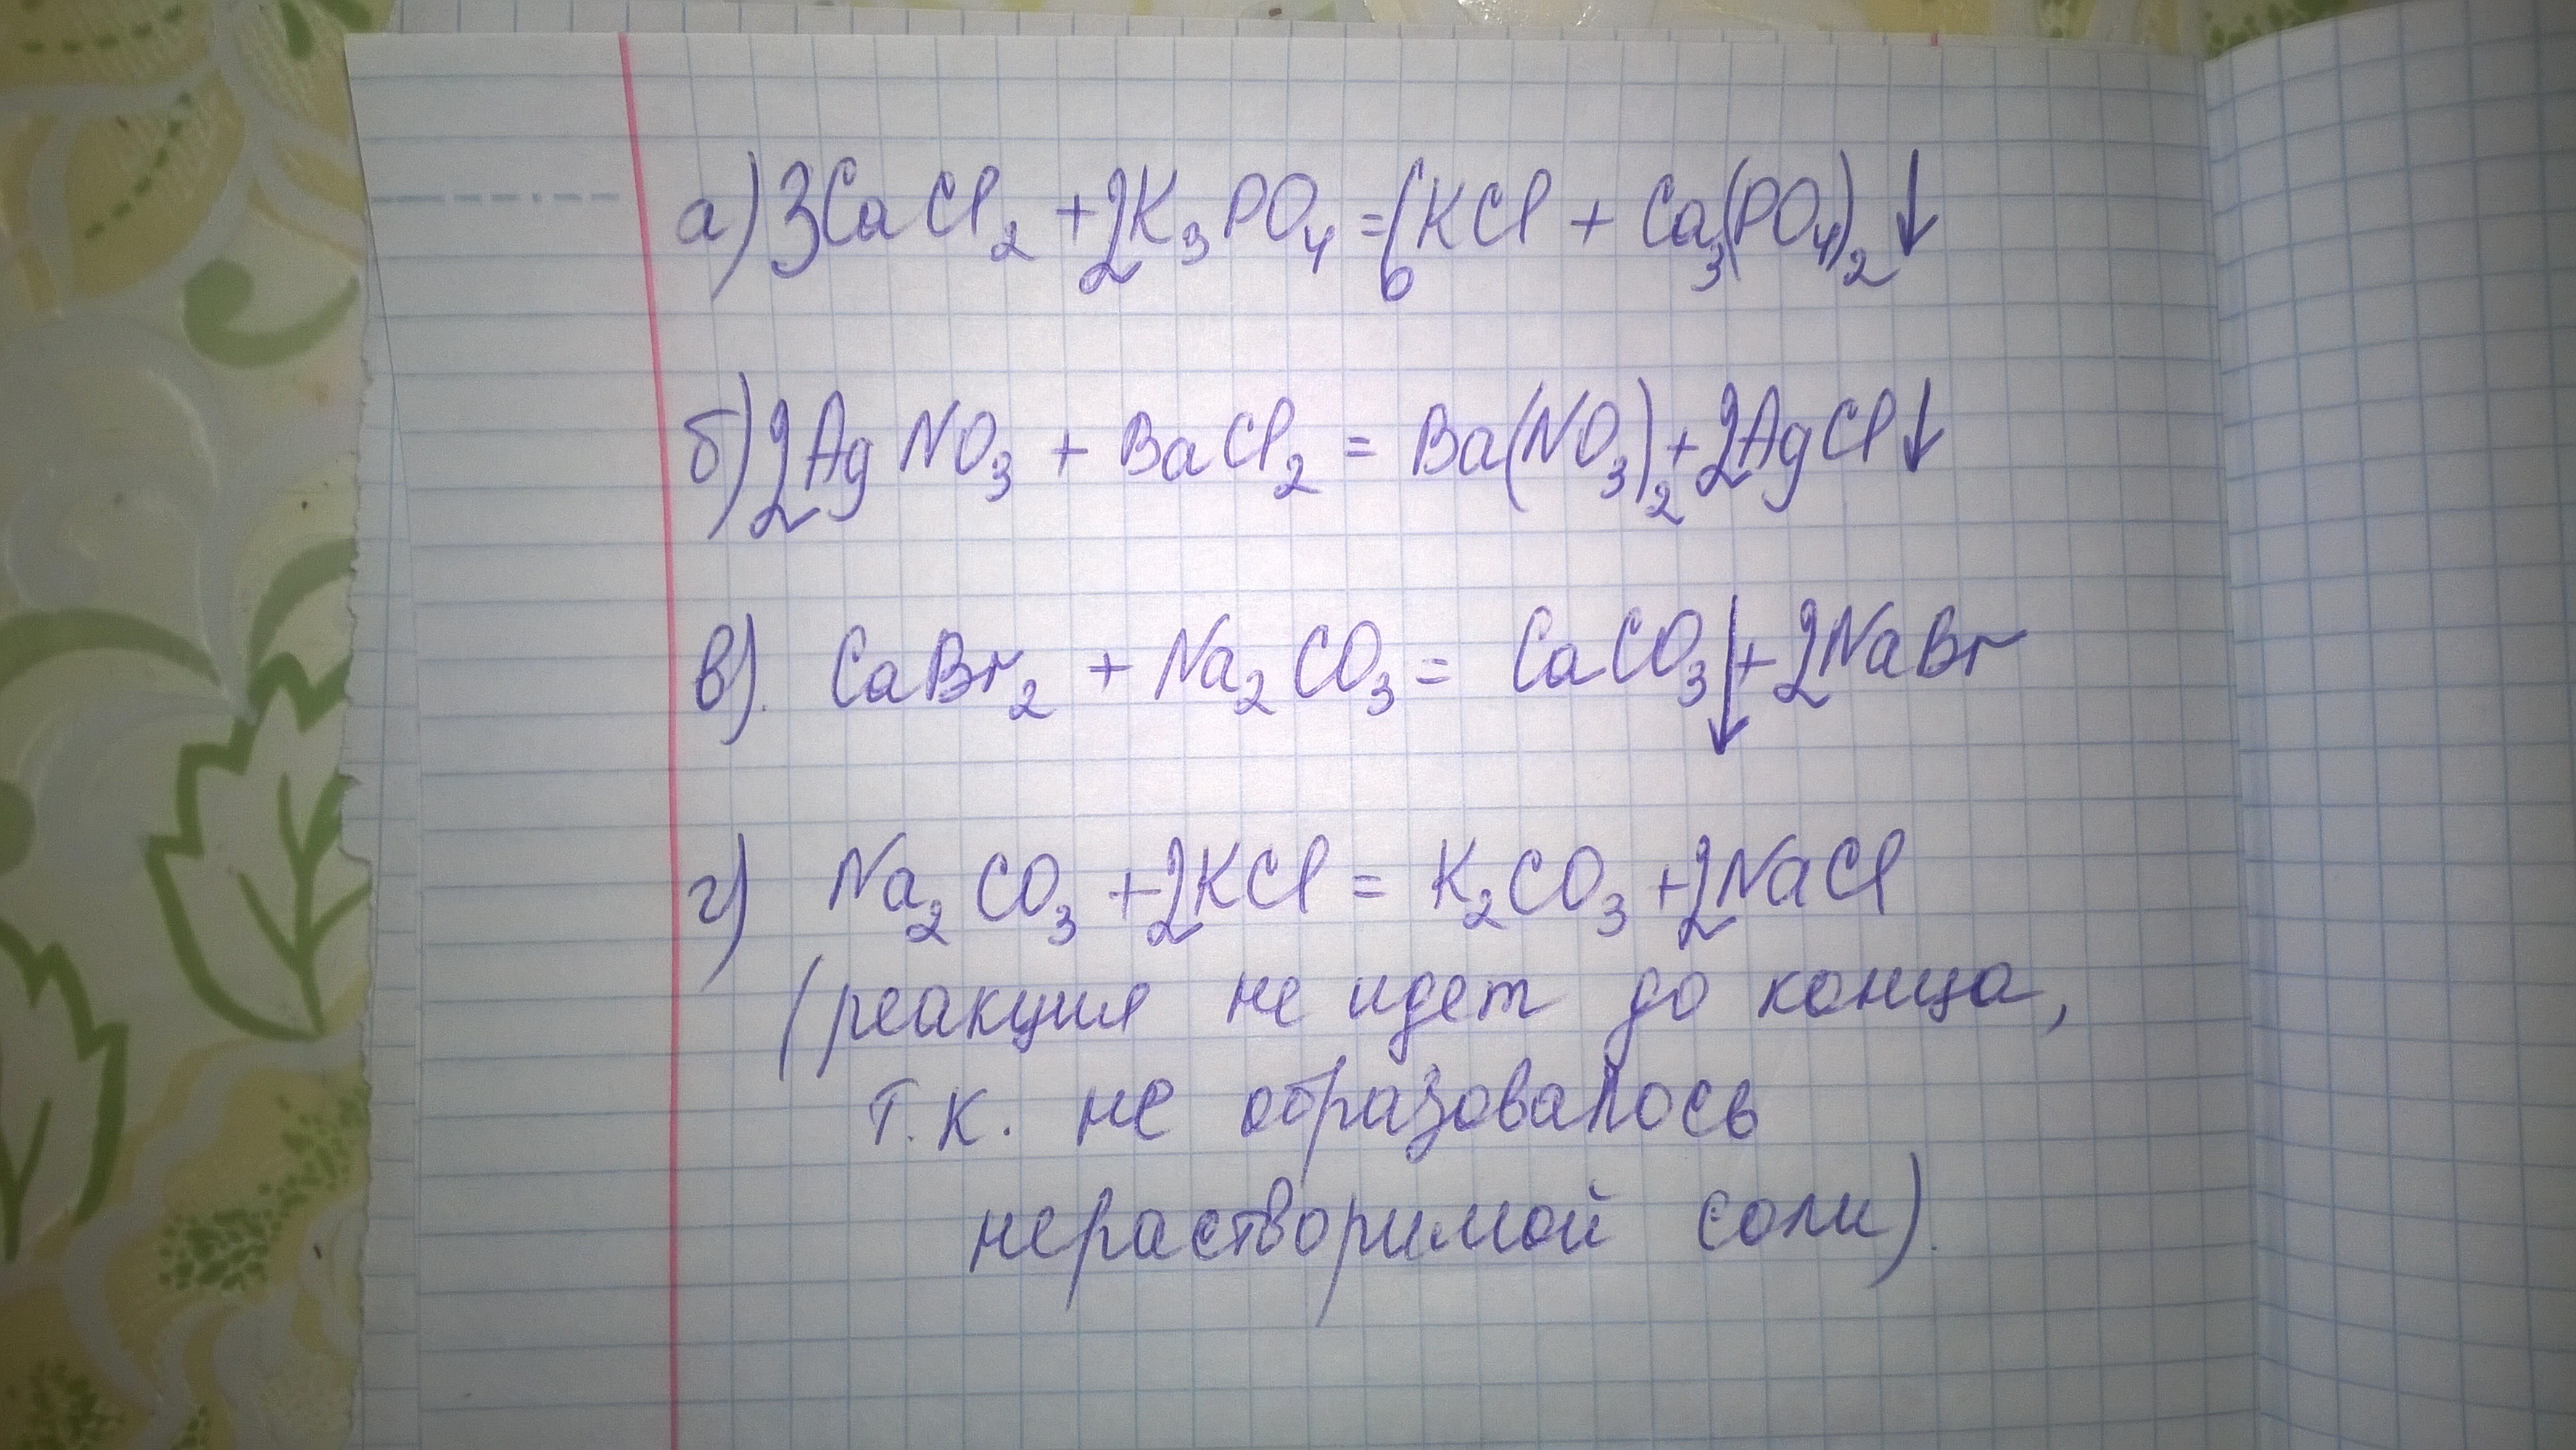 а) 3CaCl₂ + 2K₃PO₄ = 6KCl + Ca₃(PO₄)₂↓
б) 2AgNO₃ + BaCl₂ = Ba(NO₃)₂ + 2AgCl↓
в). CaBr₂ + Na₂CO₃ = CaCO₃↓ + 2NaBr
г) Na₂CO₃ + 2KCl = K₂CO₃ + 2NaCl
(реакция не идет до конца,
т.к. не образовалось
нерастворимой соли).